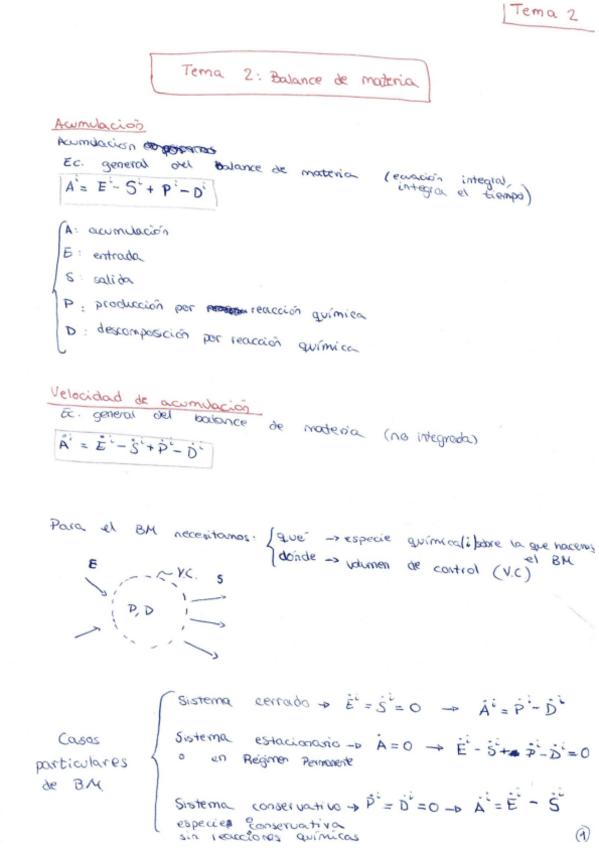 Tema 2
Tema 2: Balance de materia
Acumulación
Acumulación
Ec. general del balance de materia (ecuación integral,
integra el tiempo)
Aⁱ = Eⁱ - Sⁱ + Pⁱ - Dⁱ
A: acumulación
E: entrada
S: salida
P: producción por reacción química
D: descomposición por reacción química
Velocidad de acumulación
Ec. general del balance de materia (no integrada)
Ȧⁱ = Ėⁱ - Ṡⁱ + Ṗⁱ - Ḋⁱ
Para el BM necesitamos: qué → especie química (i) sobre la que hacemos
el BM
dónde → volumen de control (V.C)
E
V.C.
S
P, D
Casos
particulares
de BM
Sistema cerrado → Ėⁱ = Ṡⁱ = 0 → Ȧⁱ = Ṗⁱ - Ḋⁱ
Sistema estacionario → Ȧ = 0 → Ėⁱ - Ṡⁱ + Ṗⁱ - Ḋⁱ = 0
o en Régimen Permanente
Sistema conservativo → Ṗⁱ = Ḋⁱ = 0 → Ȧⁱ = Ėⁱ - Ṡⁱ
especies conservativa
sin reacciones químicas
1